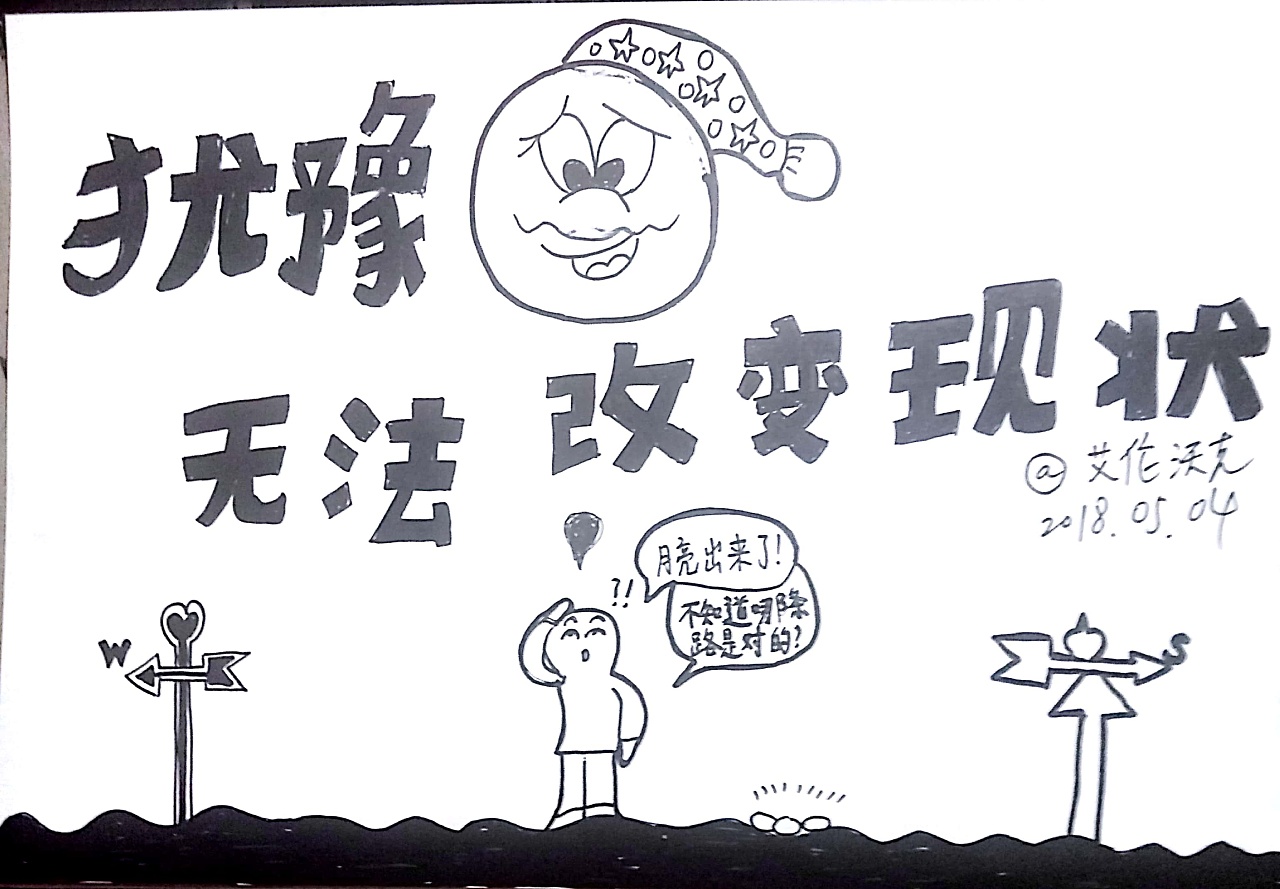 犹豫
无法改变现状
@艾伦沃克
2018.05.04
?!
月亮出来了!
不知道哪条
路是对的?
W
S